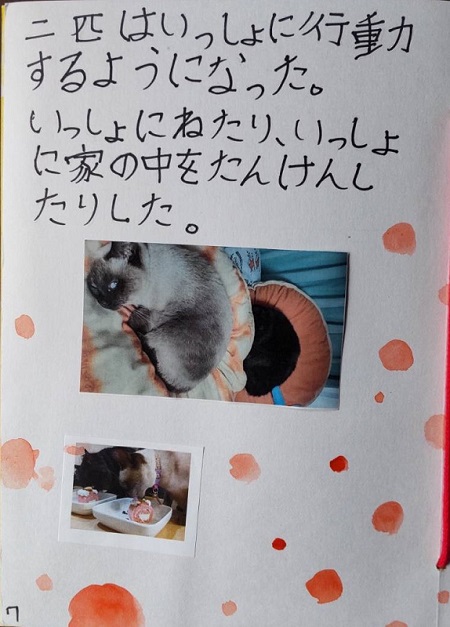 二匹はいっしょに行動
するようになった。
いっしょにねたり、いっしょ
に家の中をたんけんし
たりした。
7